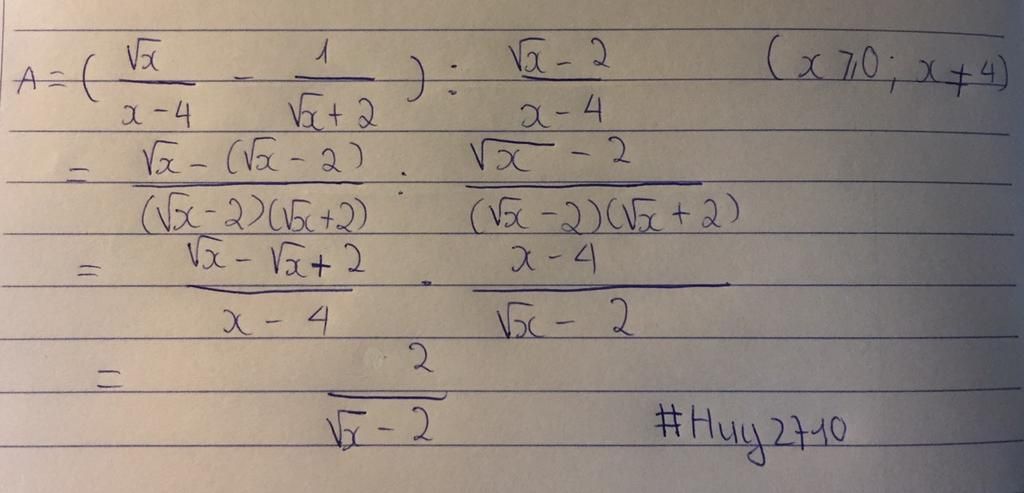 A = ( √x / x - 4 - 1 / √x + 2 ) : √x - 2 / x - 4 ( x ⩾ 0 ; x ≠ 4 )
= √x - (√x - 2) / (√x - 2)(√x + 2) : √x - 2 / (√x - 2)(√x + 2)
= √x - √x + 2 / x - 4 . x - 4 / √x - 2
= 2 / √x - 2
#Huy2710